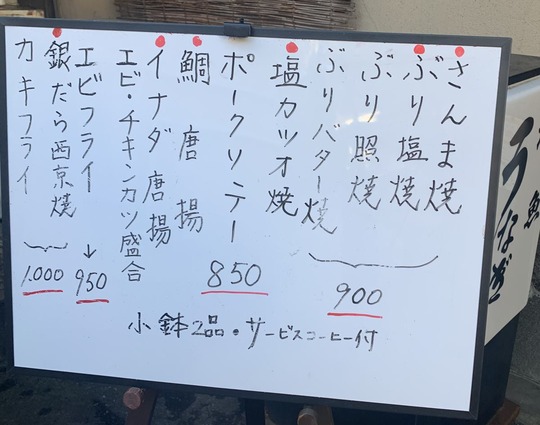 さんま焼
ぶり塩焼
ぶり照焼
ぶりバター焼
900
塩カツオ焼
ポークソテー
850
鯛唐揚
イナダ唐揚
エビ・チキンカツ盛合
エビフライ
↓
950
銀だら西京焼
カキフライ
1.000
小鉢2品・サービスコーヒー付
うなぎ